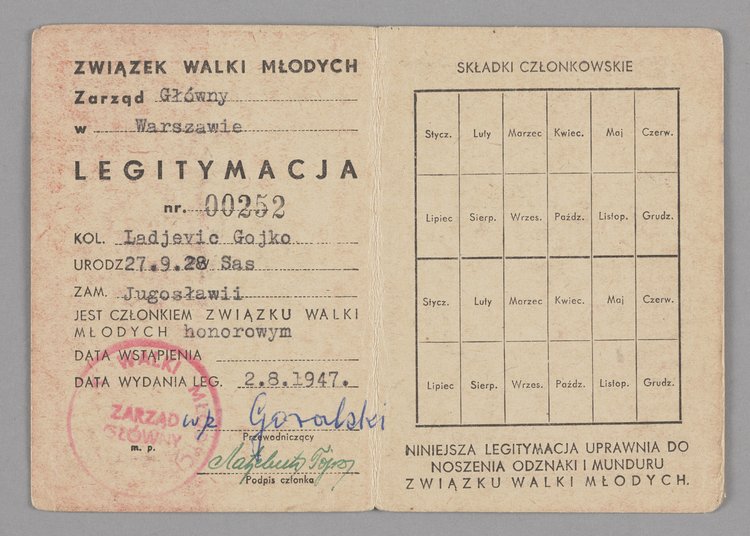 ZWIĄZEK WALKI MŁODYCH
Zarząd Główny
w Warszawie
LEGITYMACJA
nr. 00252
KOL. Ladjevic Gojko
URODZ 27.9.28 Sas
ZAM. Jugosławii
JEST CZŁONKIEM ZWIĄZKU WALKI
MŁODYCH honorowym
DATA WSTĄPIENIA
DATA WYDANIA LEG. 2.8.1947.
WALKI
ZARZĄD
GŁÓWNY
m. p.
wz Goralski
Przewodniczący
Podpis członka
SKŁADKI CZŁONKOWSKIE
Stycz. Luty Marzec Kwiec. Maj Czerw.
Lipiec Sierp. Wrzes. Paźdz. Listop. Grudz.
Stycz. Luty Marzec Kwiec. Maj Czerw.
Lipiec Sierp. Wrzes. Paźdz. Listop. Grudz.
NINIEJSZA LEGITYMACJA UPRAWNIA DO
NOSZENIA ODZNAKI I MUNDURU
ZWIĄZKU WALKI MŁODYCH.